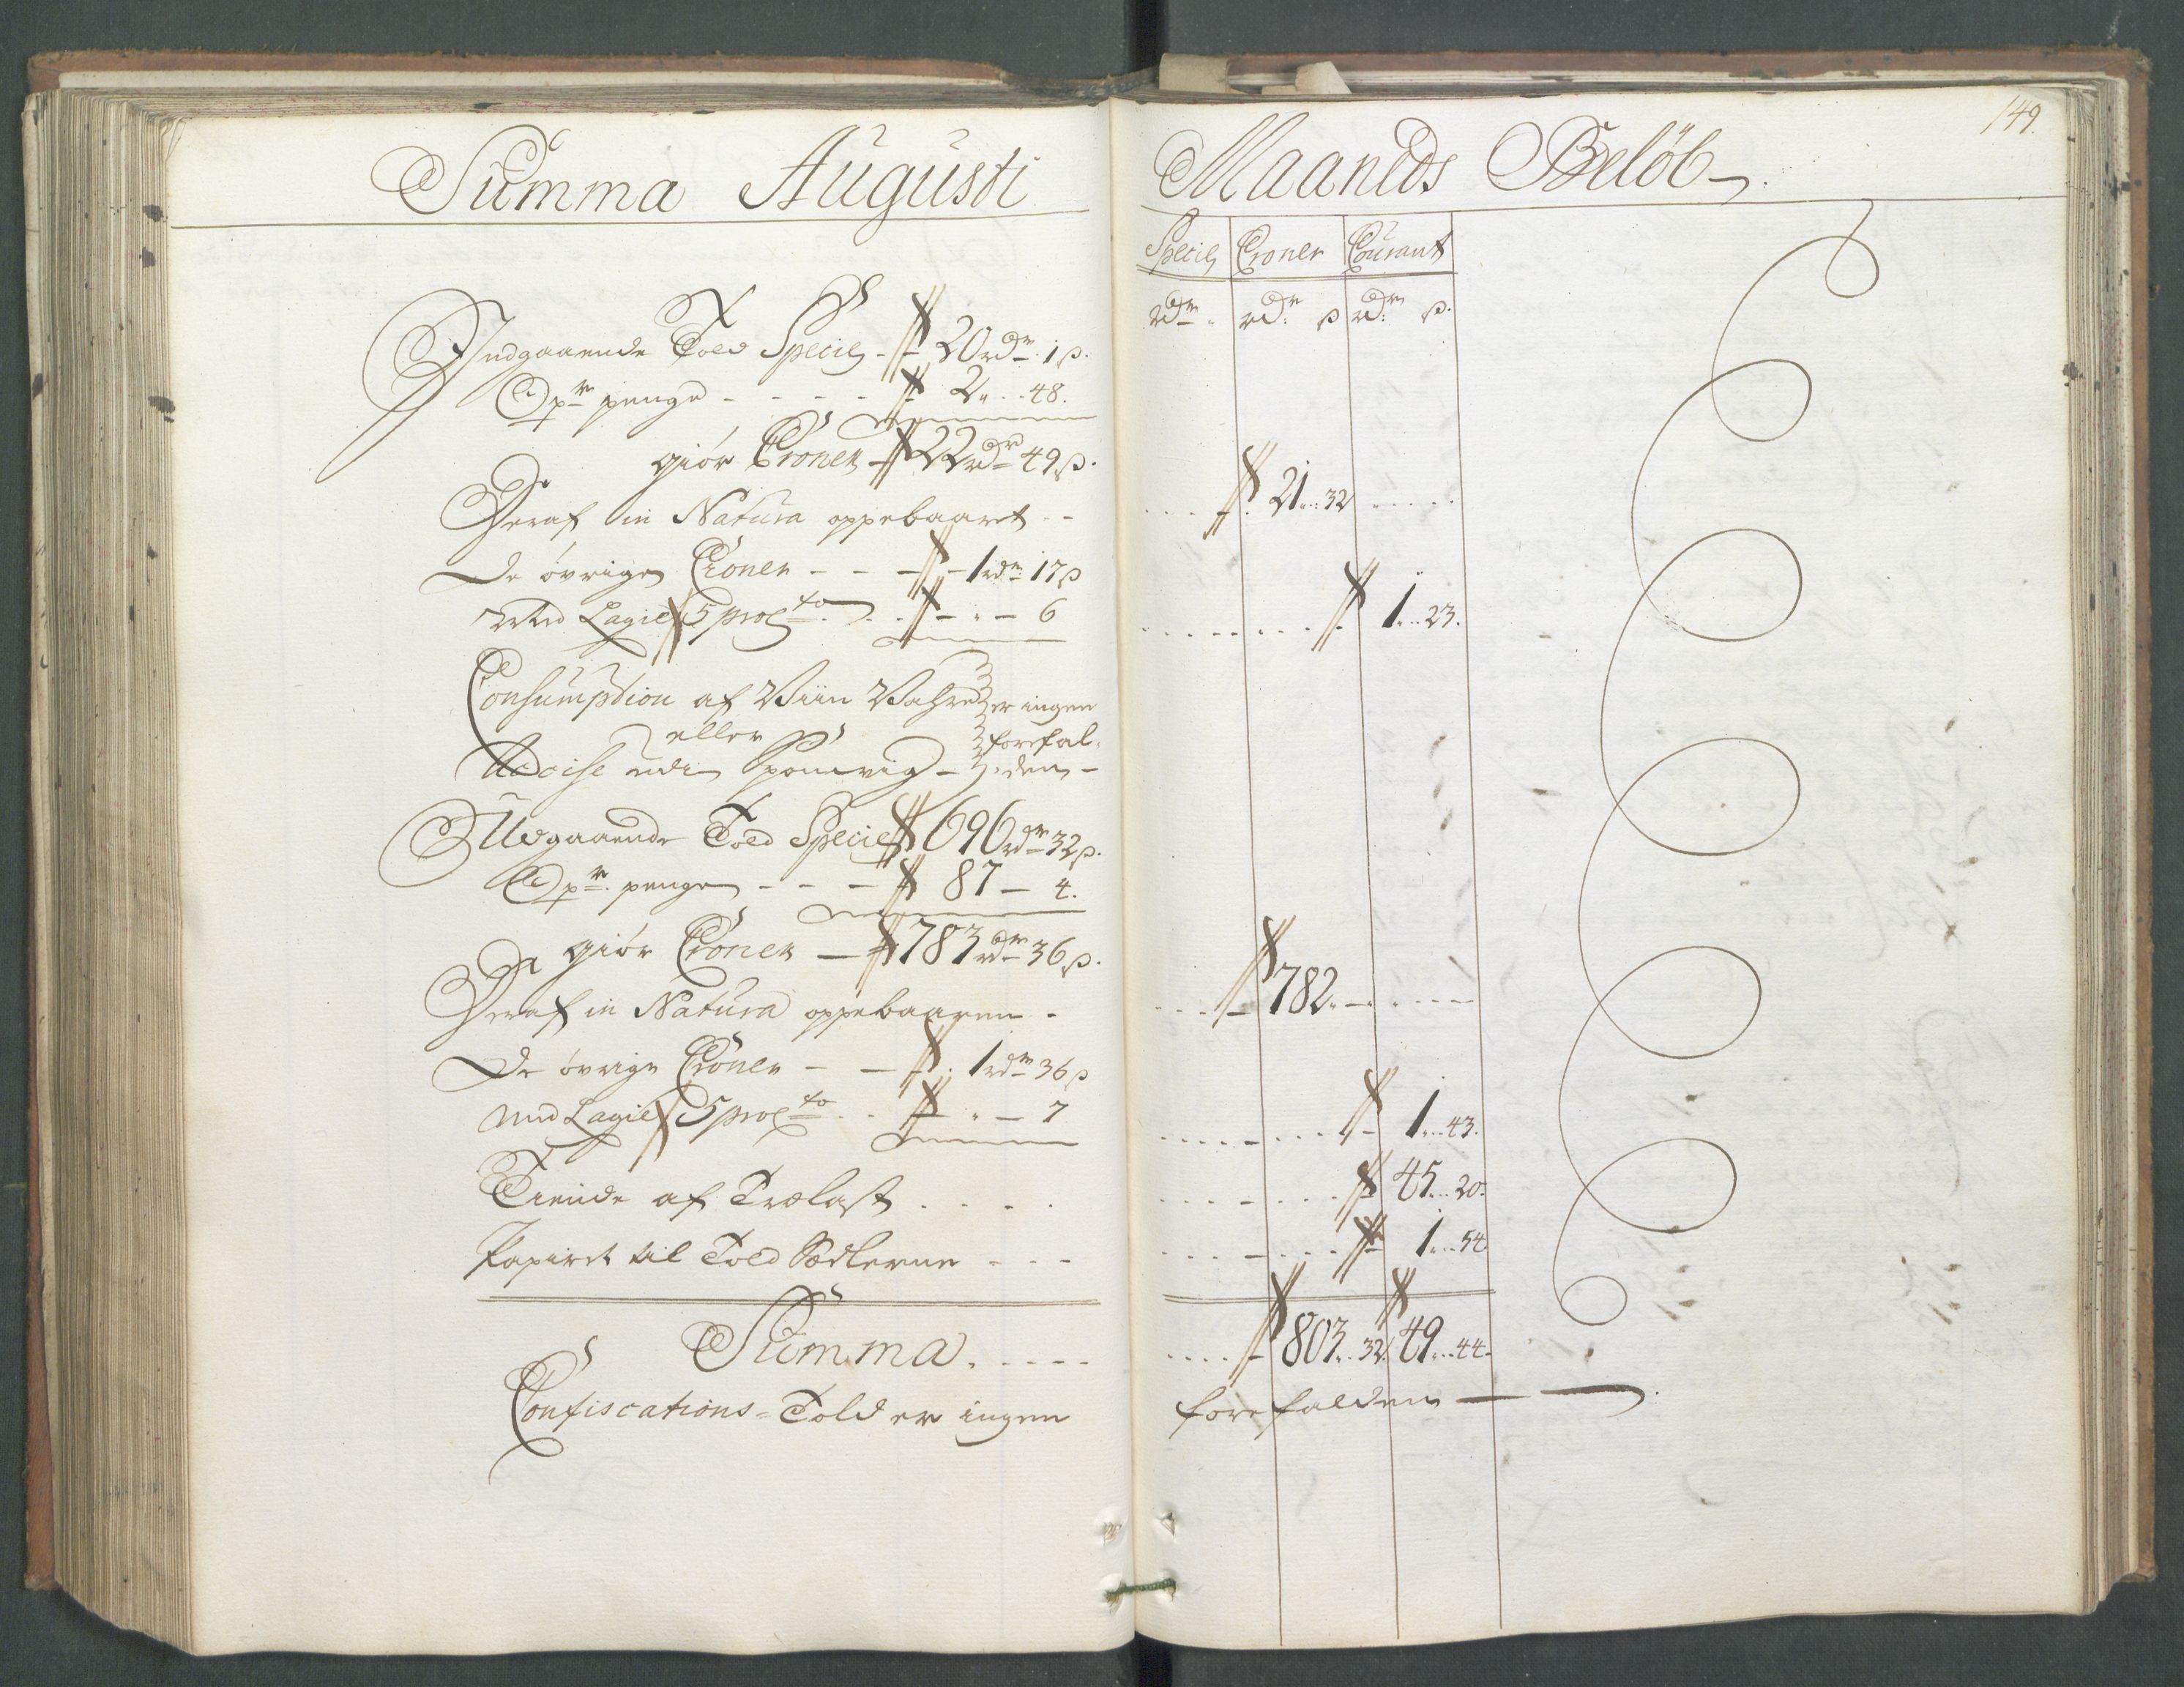 149.
Summa Augusti Maaneds Beløb
Specie Croner Courant
rdr rdr ß rdr ß.
Indgaaende Told Specie - 20 rdr 1 ß.
Opr penge - - - - 2 .. 48.
giör Croner 22 rdr 49 ß.
Heraf in Natura oppebaaret - - 21 .. 32
De övrige Croner - - - 1 rdr 17 ß
Med Lagie 5 proCto . . - . - 6 1 .. 23.
Consumption af Viin Vahre er ingen
eller forefal-
Accise udi - den -
Udgaaende Told Specie 696 rdr 32 ß.
Opr penge - - - 87 - 4.
giör Croner - 783 rdr 36 ß.
Heraf in Natura oppebaaren - 782 . -
De övrige Croner - - - 1 rdr 36 ß
Med Lagie 5 proCto . . . - 7 1 .. 43.
Tiende af Trælast . . . . 45 .. 20.
Papiret til Told Sædlerne - - - 1 .. 54
Summa . - - - - 803 .. 32. 49 .. 44.
Confiscations-Told er ingen forefalden